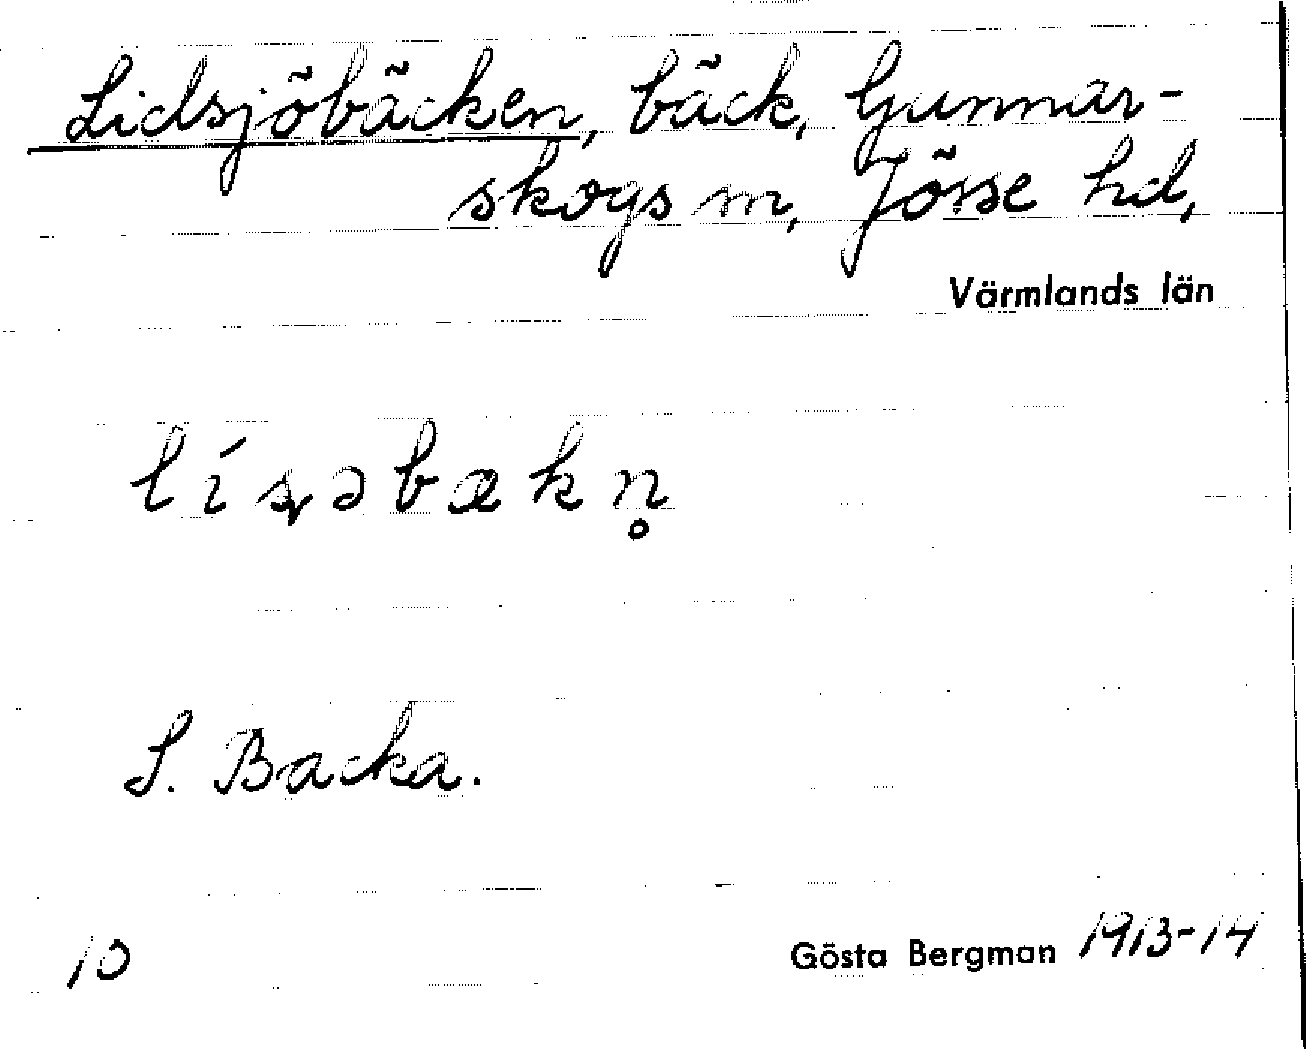 Lidsjöbäcken, bäck, Gunnar-
skogs sn, Jösse hd,
Värmlands län
lísₒəbækn̥
S. Backa.
10
Gösta Bergman 1913-14